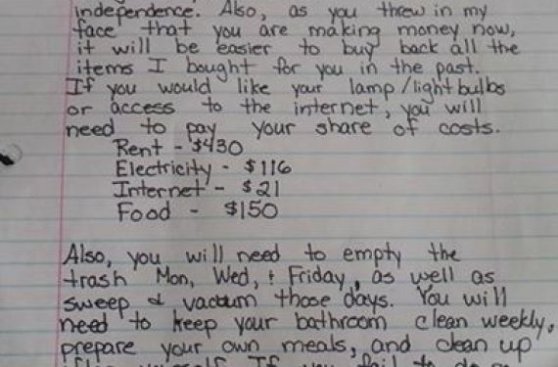 independence. Also, as you threw in my
face that you are making money now,
it will be easier to buy back all the
items I bought for you in the past.
If you would like your lamp/light bulbs
or access to the internet, you will
need to pay your share of costs.
Rent - $430
Electricity - $116
Internet - $21
Food - $150
Also, you will need to empty the
trash Mon, Wed, & Friday, as well as
sweep & vacuum those days. You will
need to keep your bathroom clean weekly,
prepare your own meals, and clean up
If you fail to do